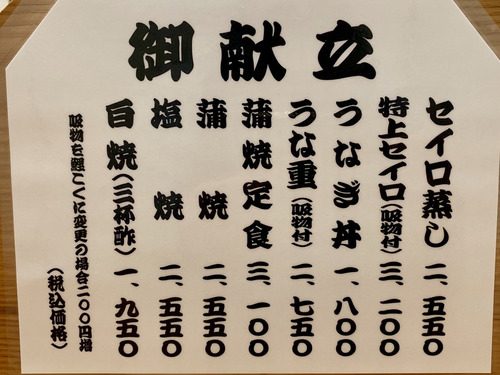 御献立
セイロ蒸し 二、五五〇
特上セイロ(吸物付) 三、二〇〇
うなぎ丼 一、八〇〇
うな重(吸物付) 二、七五〇
蒲焼定食 三、一〇〇
蒲焼 二、五五〇
塩焼 二、五五〇
白焼(三杯酢) 一、九五〇
吸物を鯉こくに変更の場合二〇〇円増
(税込価格)